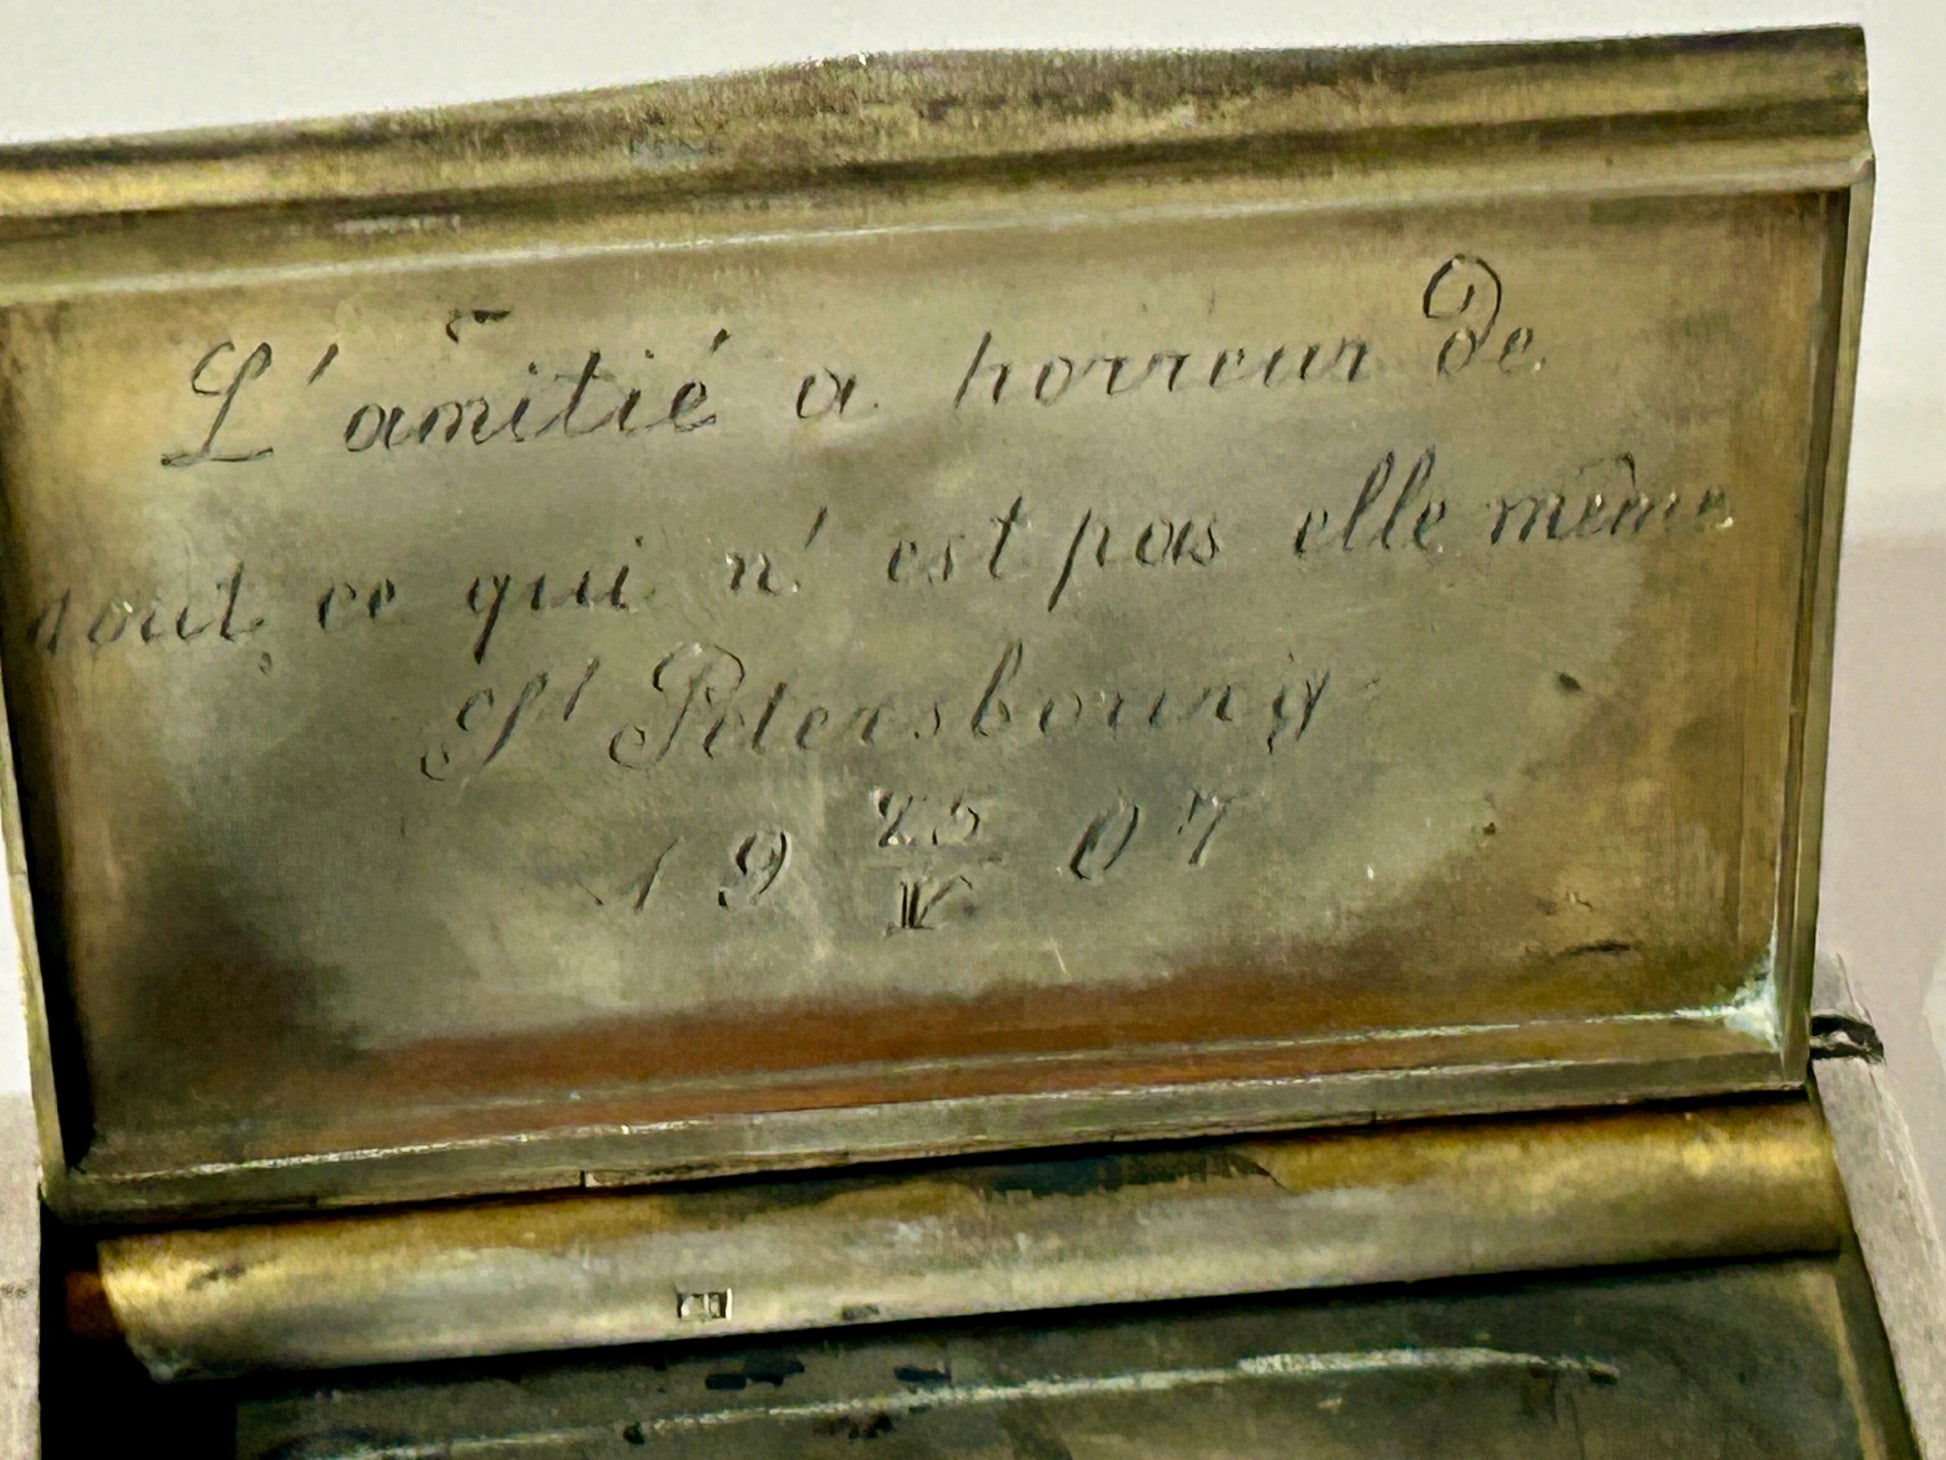 L'amitié a horreur de
tout ce qui n'est pas elle même
St Petersbourg
19 25/IV 07